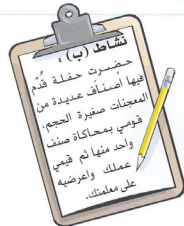 نشاط (ب) :
حضرت حفلة قُدم
فيها أصناف عديدة من
المعجنات صغيرة الحجم.
قومي بمحاكاة صنف
واحد منها ثم قيمي
عملك واعرضيه
على معلمتك.